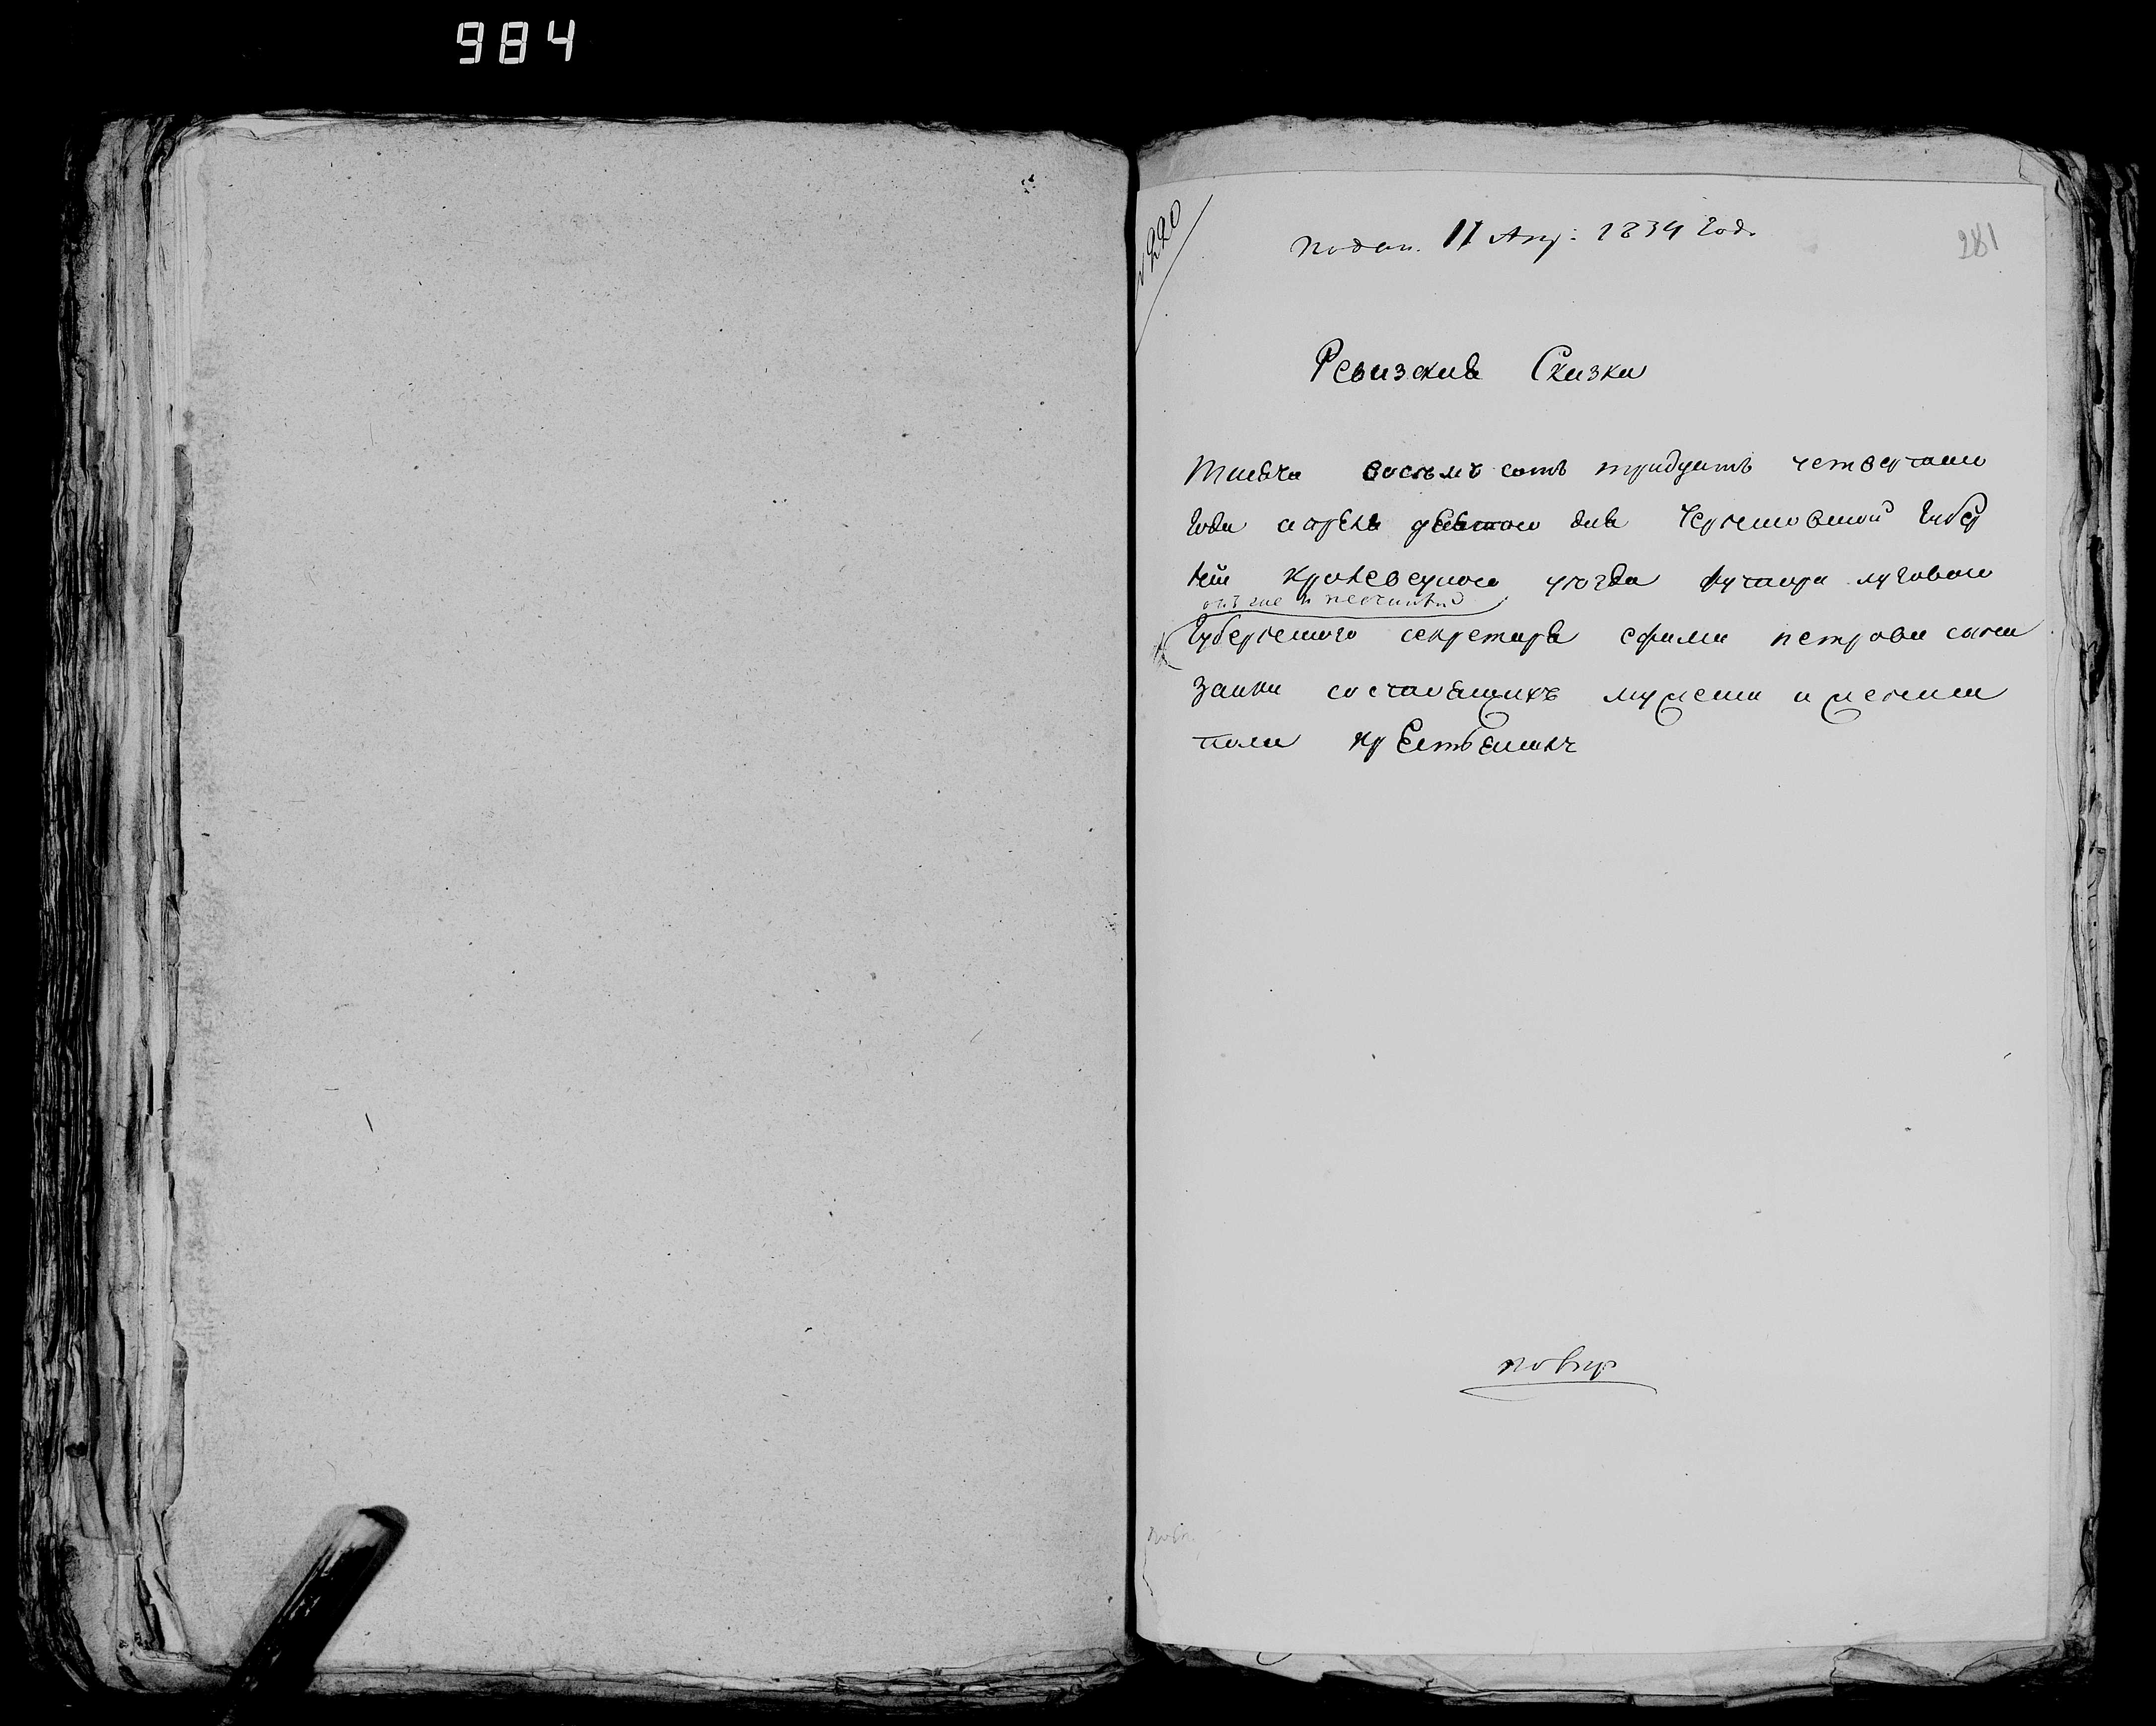 984
№ 220
Подан. 11 Апр: 1834 Год.
281
Ревизская Сказка
Тисяча восъмъ сотъ тридцать четвертаго
Года апреля девятого дня Черниговской Губер
ней кролевецкого уюзда хутора лугового
Губернского секретаря ефима петрова сына
заики состаящихъ мужеска и женска
пола крестянъ
повѣр